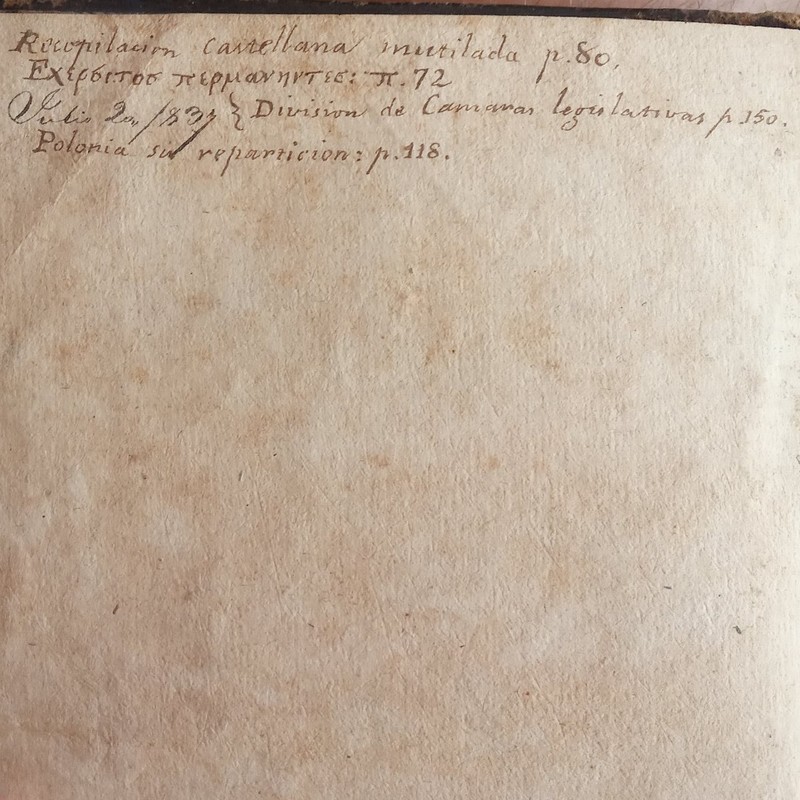 Recopilacion castellana mutilada p.80.
Εχερσιτοσ περμανηντεσ: π.72
Julio 20,, /837 } Division de Camaras legislativas p.150.
Polonia su reparticion: p.118.